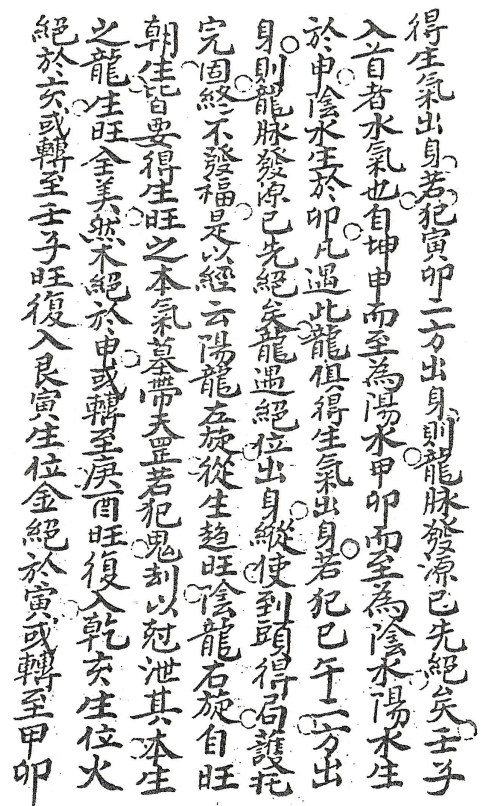 得生氣出身若犯寅卯二方出身則龍脉發源已先絕矣壬子
入首者水氣也自坤申而至為陽水甲卯而至為陰水陽水生
於申陰水生於卯凡遇此龍俱得生氣出身若犯巳午二方出
身則龍脉發源已先絕矣龍遇絕位出身縱使到頭得局護托
完固終不發福是以經云陽龍左旋從生趨旺陰龍右旋自旺
朝生皆要得生旺之本氣墓帶天罡若犯鬼刼以尅泄其本生
之龍生旺全美然木絕於申或轉至庚酉旺復入乾亥生位火
絕於亥或轉至壬子旺復入艮寅生位金絕於寅或轉至甲卯